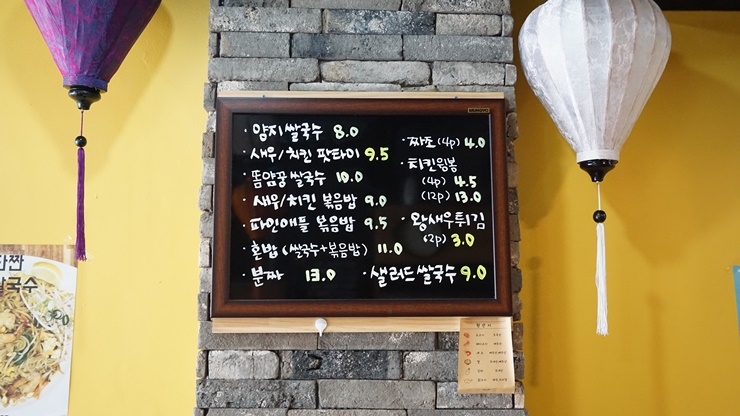 · 양지쌀국수 8.0
· 새우/치킨 팟타이 9.5
· 똠얌꿍 쌀국수 10.0
· 새우/치킨 볶음밥 9.0
· 파인애플 볶음밥 9.5
· 혼밥 (쌀국수+볶음밥) 11.0
· 분짜 13.0
· 짜조 (4p) 4.0
· 치킨윙봉
(4p) 4.5
(12p) 13.0
· 왕새우튀김
(2p) 3.0
· 샐러드 쌀국수 9.0
쌀국수